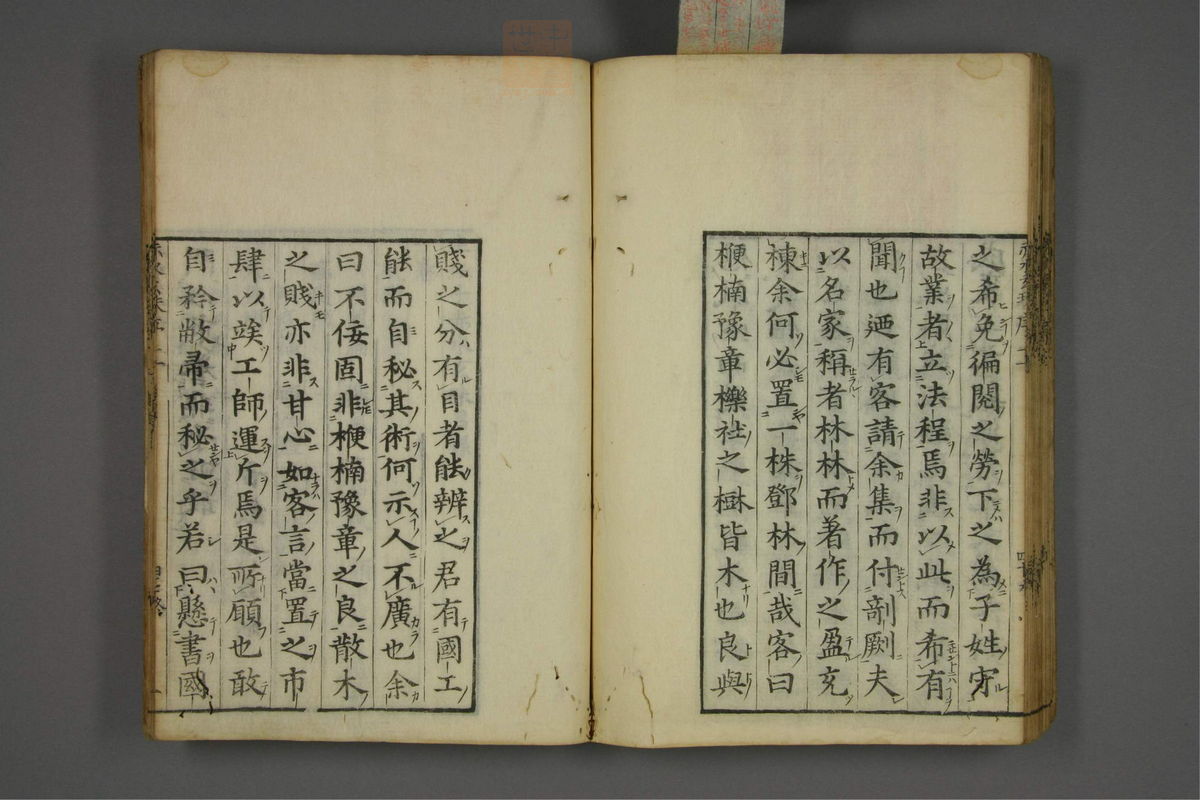 之希免徧閱之勞下之為子姓守
故業者立法程焉非以此而希有
聞也迺有客請余集而付剞劂夫
以名家稱者林林而著作之盈充
棟余何必置一株鄧林間哉客曰
楩楠豫章櫟社之樹皆木也良與
賤之分有目者能辨之君有國工
能而自秘其術何示人不廣也余
曰不佞固非楩楠豫章之良散木
之賤亦非甘心如客言當置之市
肆以竢工師運斤焉是所願也敢
自矜敝帚而秘之乎若曰懸書國